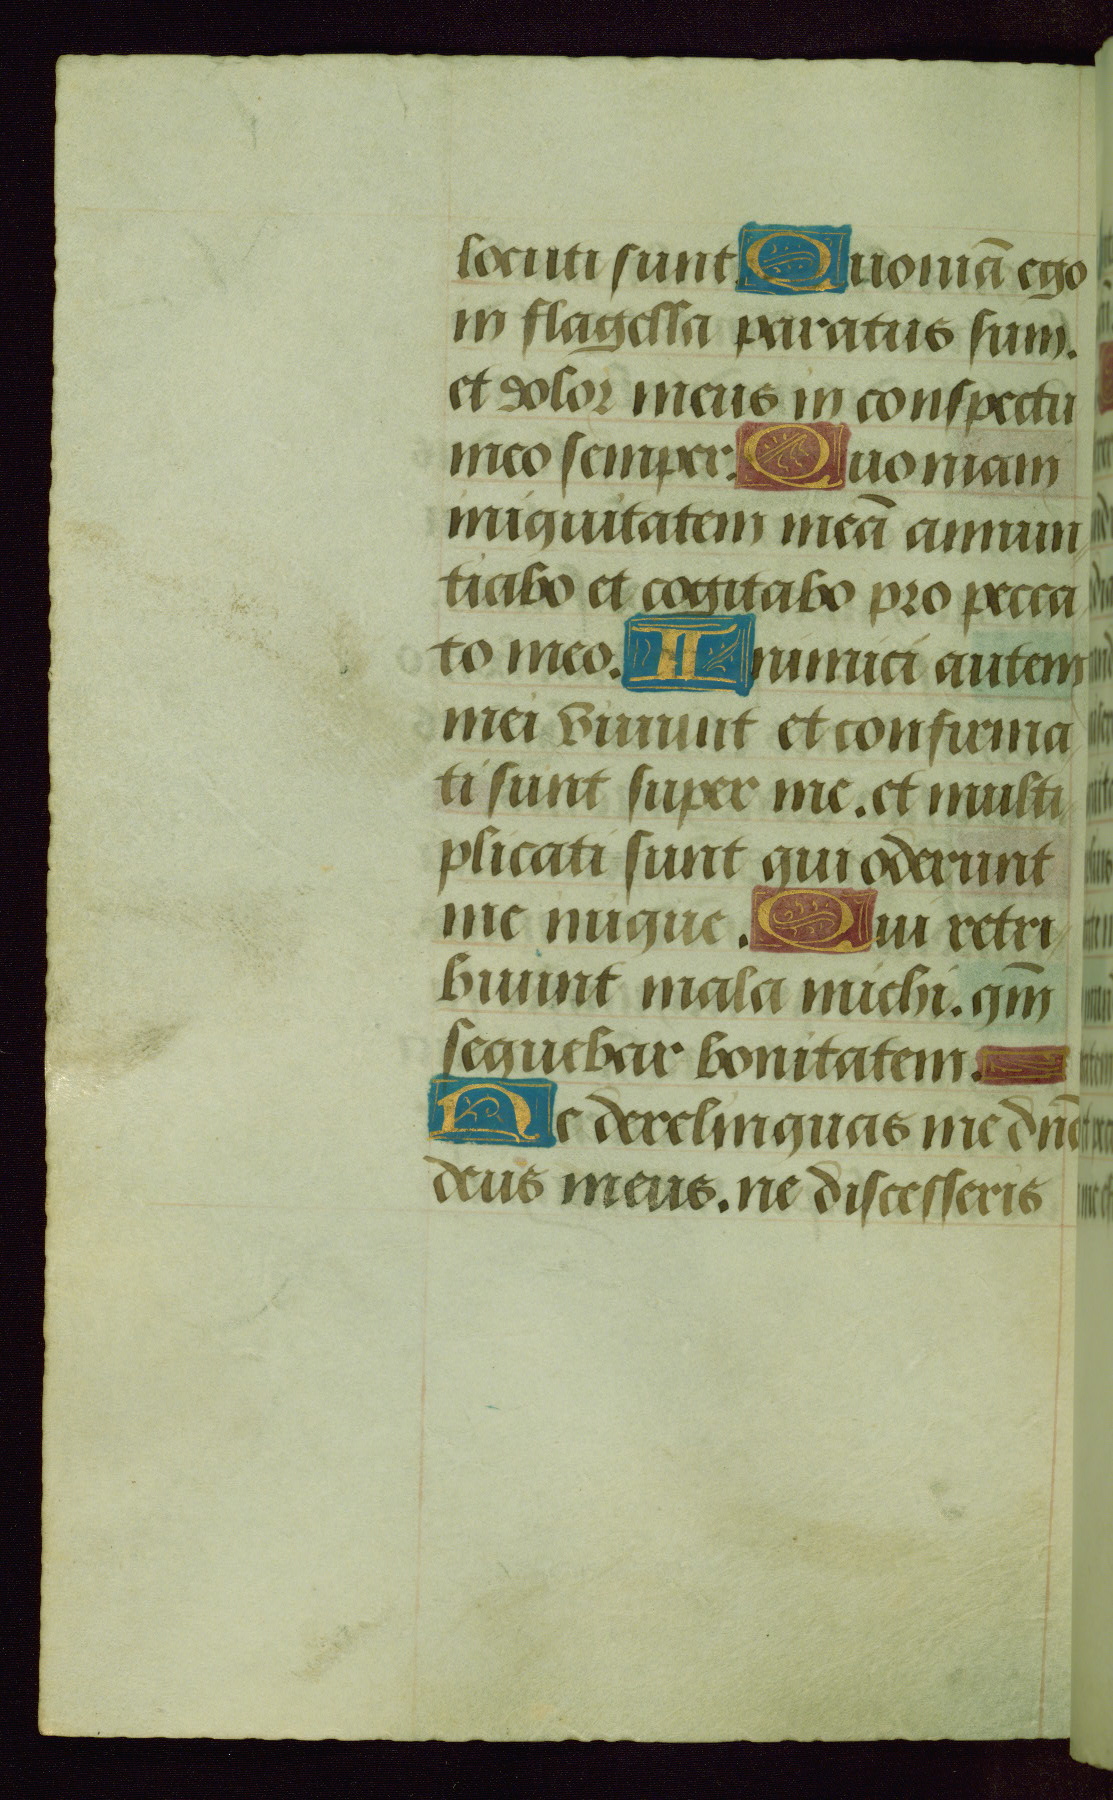 locuti sunt. Quoniā ego
in flagella paratus sum.
et dolor meus in conspectu
meo semper. Quoniam
iniquitatem meā annun
tiabo et cogitabo pro pecca
to meo. Inimici autem
mei vivunt et confirma
ti sunt super me. et multi
plicati sunt qui oderunt
me inique. Qui retri
buunt mala michi. qm̄
sequebar bonitatem.
Ne derelinquas me dn̄e
deus meus. ne discesseris